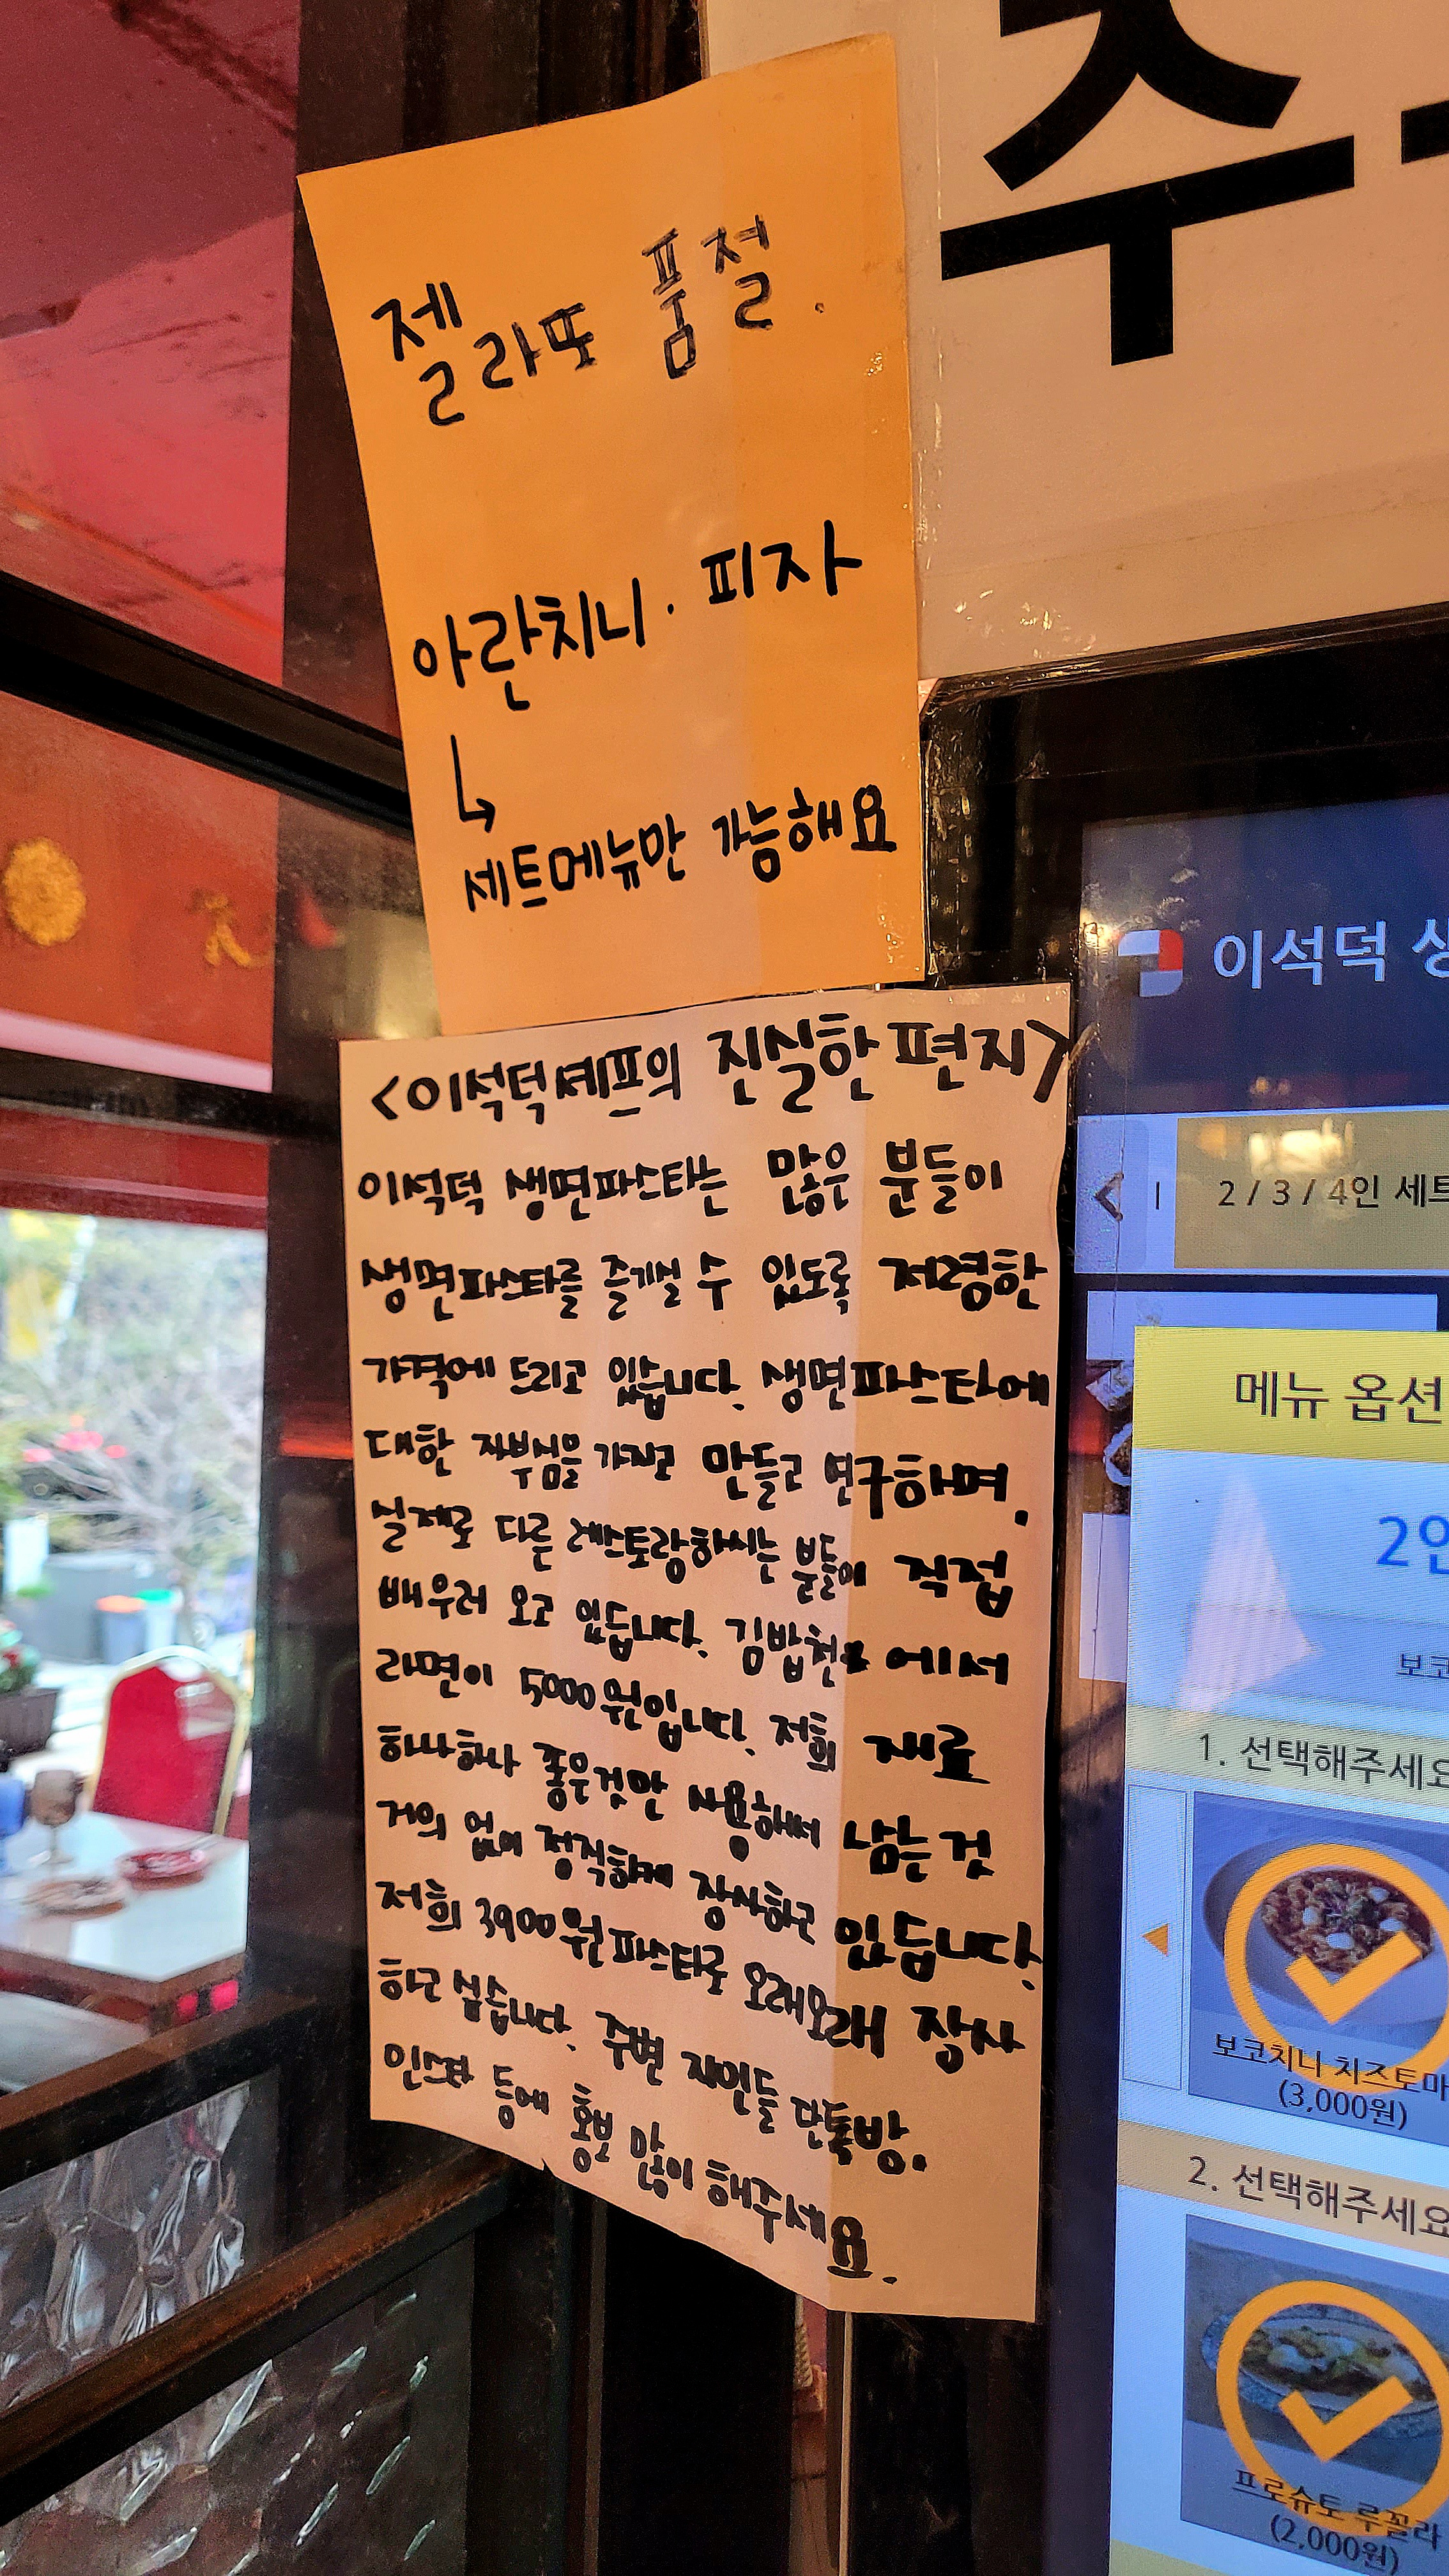 젤라또 품절.
아란치니. 피자
↳ 세트메뉴만 가능해요
<이석덕셰프의 진실한 편지>
이석덕 생면파스타는 많은 분들이
생면파스타를 즐기실 수 있도록 저렴한
가격에 드리고 있습니다. 생면파스타에
대한 자부심을 가지고 만들고 연구하며,
실제로 다른 레스토랑하시는 분들이 직접
배우러 오고 있습니다. 김밥천 에서
라면이 5000원입니다. 저희 재료
하나하나 좋은것만 사용해서 남는 것
거의 없이 정직하게 장사하고 있습니다.
저희 3900원 파스타로 오래오래 장사
하고 싶습니다. 주변 지인들 단톡방.
인스타 등에 홍보 많이 해주세요.
이석덕
< | 2 / 3 / 4인 세트
메뉴 옵션
2인
보코
1. 선택해주세요
보코치니 치즈토마
(3,000원)
2. 선택해주세요
프로슈토 루꼴라
(2,000원)